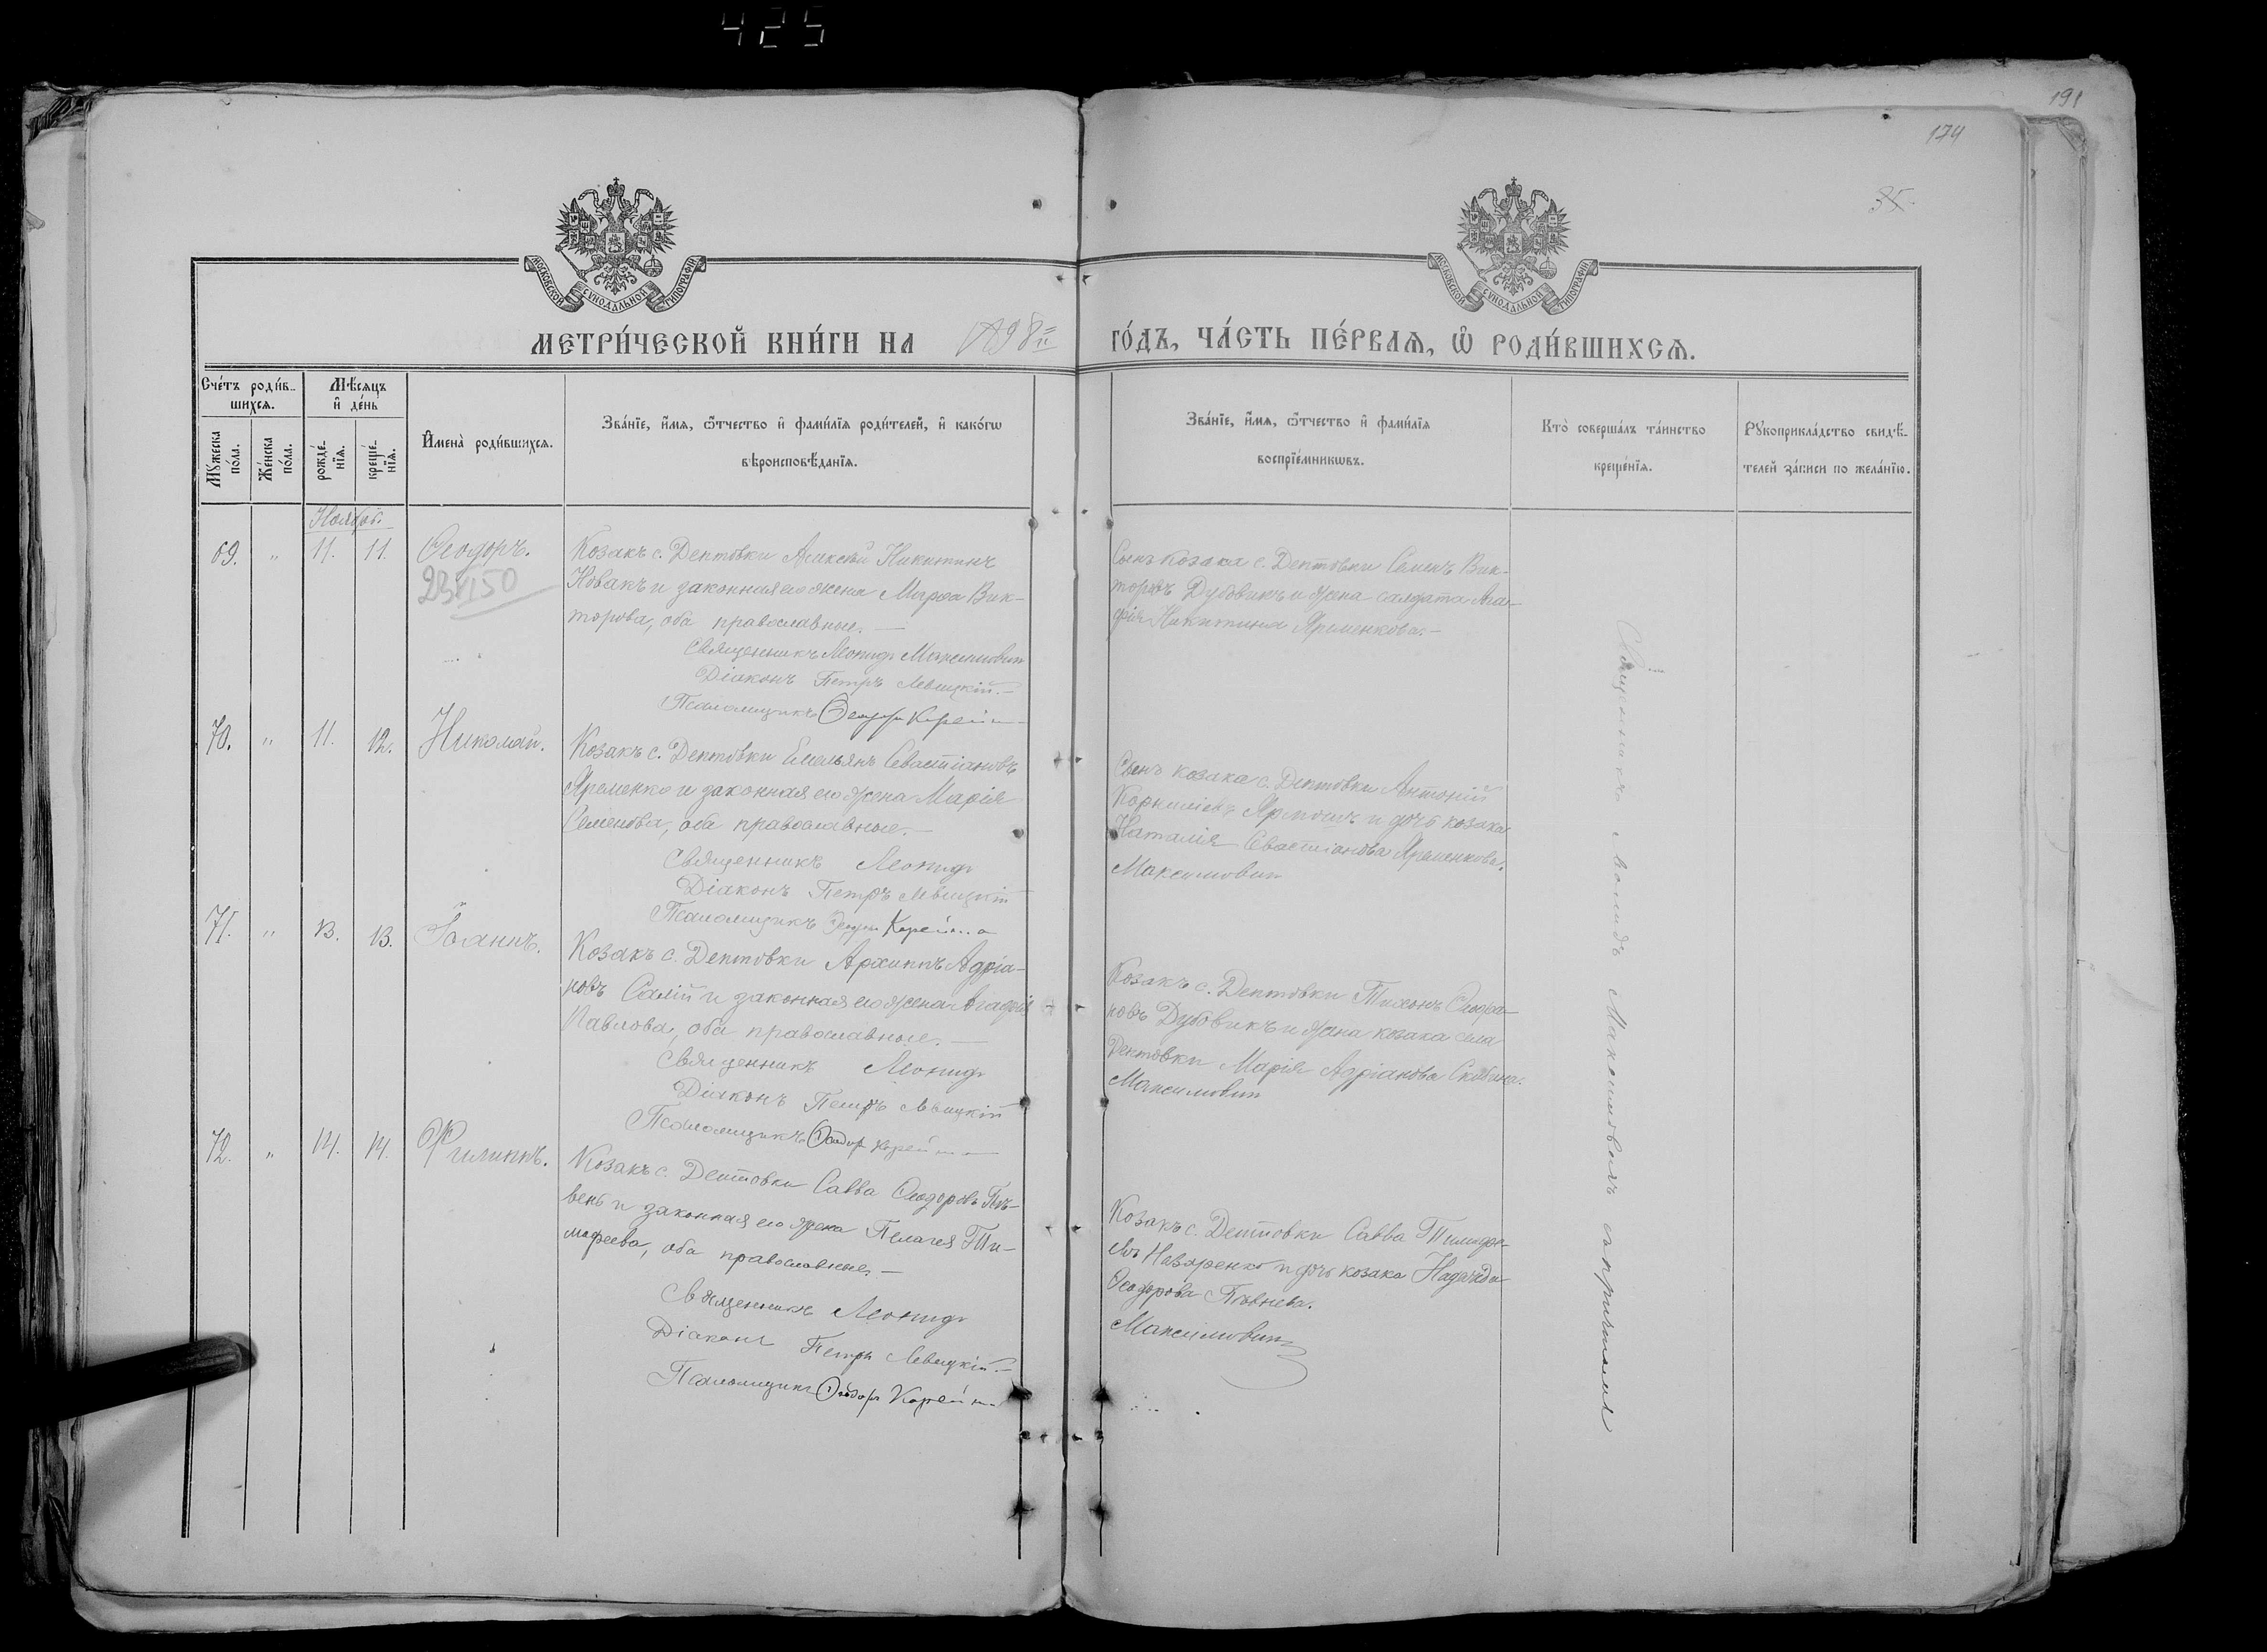 425
191
174
35
МОСКОВСКОЙ СѴНОДАЛЬНОЙ ТИПОГРАФІИ
МОСКОВСКОЙ СѴНОДАЛЬНОЙ ТИПОГРАФІИ
МЕТРИ́ЧЕСКОЙ КНИ́ГИ НА 1898
ГО́ДЪ, ЧА́СТЬ ПЕ́РВАѦ, Ѡ РОДИ́ВШИХСѦ.
Сче́тъ роди́в-
шихсѧ.
Мѣ́сѧцъ
и де́нь
Мꙋ́жеска
по́ла.
Же́нска
по́ла.
рожде́-
нїѧ.
креще́-
нїѧ.
Имена̀ роди́вшихсѧ.
Зва́нїе, и́мѧ, ѻ́тчество и фами́лїѧ роди́телей, и како́гѡ
вѣроисповѣ́данїѧ.
Зва́нїе, и́мѧ, ѻ́тчество и фами́лїѧ
воспрїе́мникѡвъ.
Кто̀ соверша́лъ та́инство
креще́нїѧ.
Рꙋкоприкла́дство свидѣ́-
телей за́писи по жела́нїю.
Ноябрь.
69. " 11. 11. Ѳеодоръ.
Козакъ с. Дептовки Алексѣй Никитинъ
Новакъ и законная его жена Марѳа Вик-
торова, оба православные.—
Священникъ Леонидъ Максимович
Діаконъ Петръ Левицкій.—
Псаломщикъ Ѳеодоръ
Сынъ козака с. Дептовки Семенъ Вик-
торовъ Дубовикъ и жена солдата Ага-
фія Никитина Яременкова.—
70. " 11. 12. Николай.
Козакъ с. Дептовки Емельянъ Севастіановъ
Яременко и законная его жена Марія
Семенова, оба православные.—
Священникъ Леонидъ
Діаконъ Петръ Левицкій
Псаломщикъ Ѳеодоръ
Сынъ козака с. Дептовки Антоній
Корниліевъ и дочь козака
Наталія Севастіанова Яременкова.
Максимович
71. " 13. 13. Іоаннъ.
Козакъ с. Дептовки Архипъ Адріа-
новъ Салій и законная его жена Агафія
Павлова, оба православные.—
Священникъ Леонидъ
Діаконъ Петръ Левицкій
Псаломщикъ Ѳеодоръ
Козакъ с. Дептовки Тихонъ
Дубовикъ и жена козака села
Дептовки Марія Адріанова
Максимович
72. " 14. 14. Филиппъ.
Козакъ с. Дептовки Савва Ѳеодоровъ Пѣ-
вень и законная его жена Пелагея Ти-
моѳеева, оба православные.—
Священникъ Леонидъ
Діаконъ Петръ Левицкій.—
Псаломщикъ Ѳеодоръ
Козакъ с. Дептовки Савва Тимоѳе-
евъ Назаренко и дочь козака Надежда
Ѳеодорова Пѣвнева.
Максимович
Священникъ Леонидъ Максимовичъ